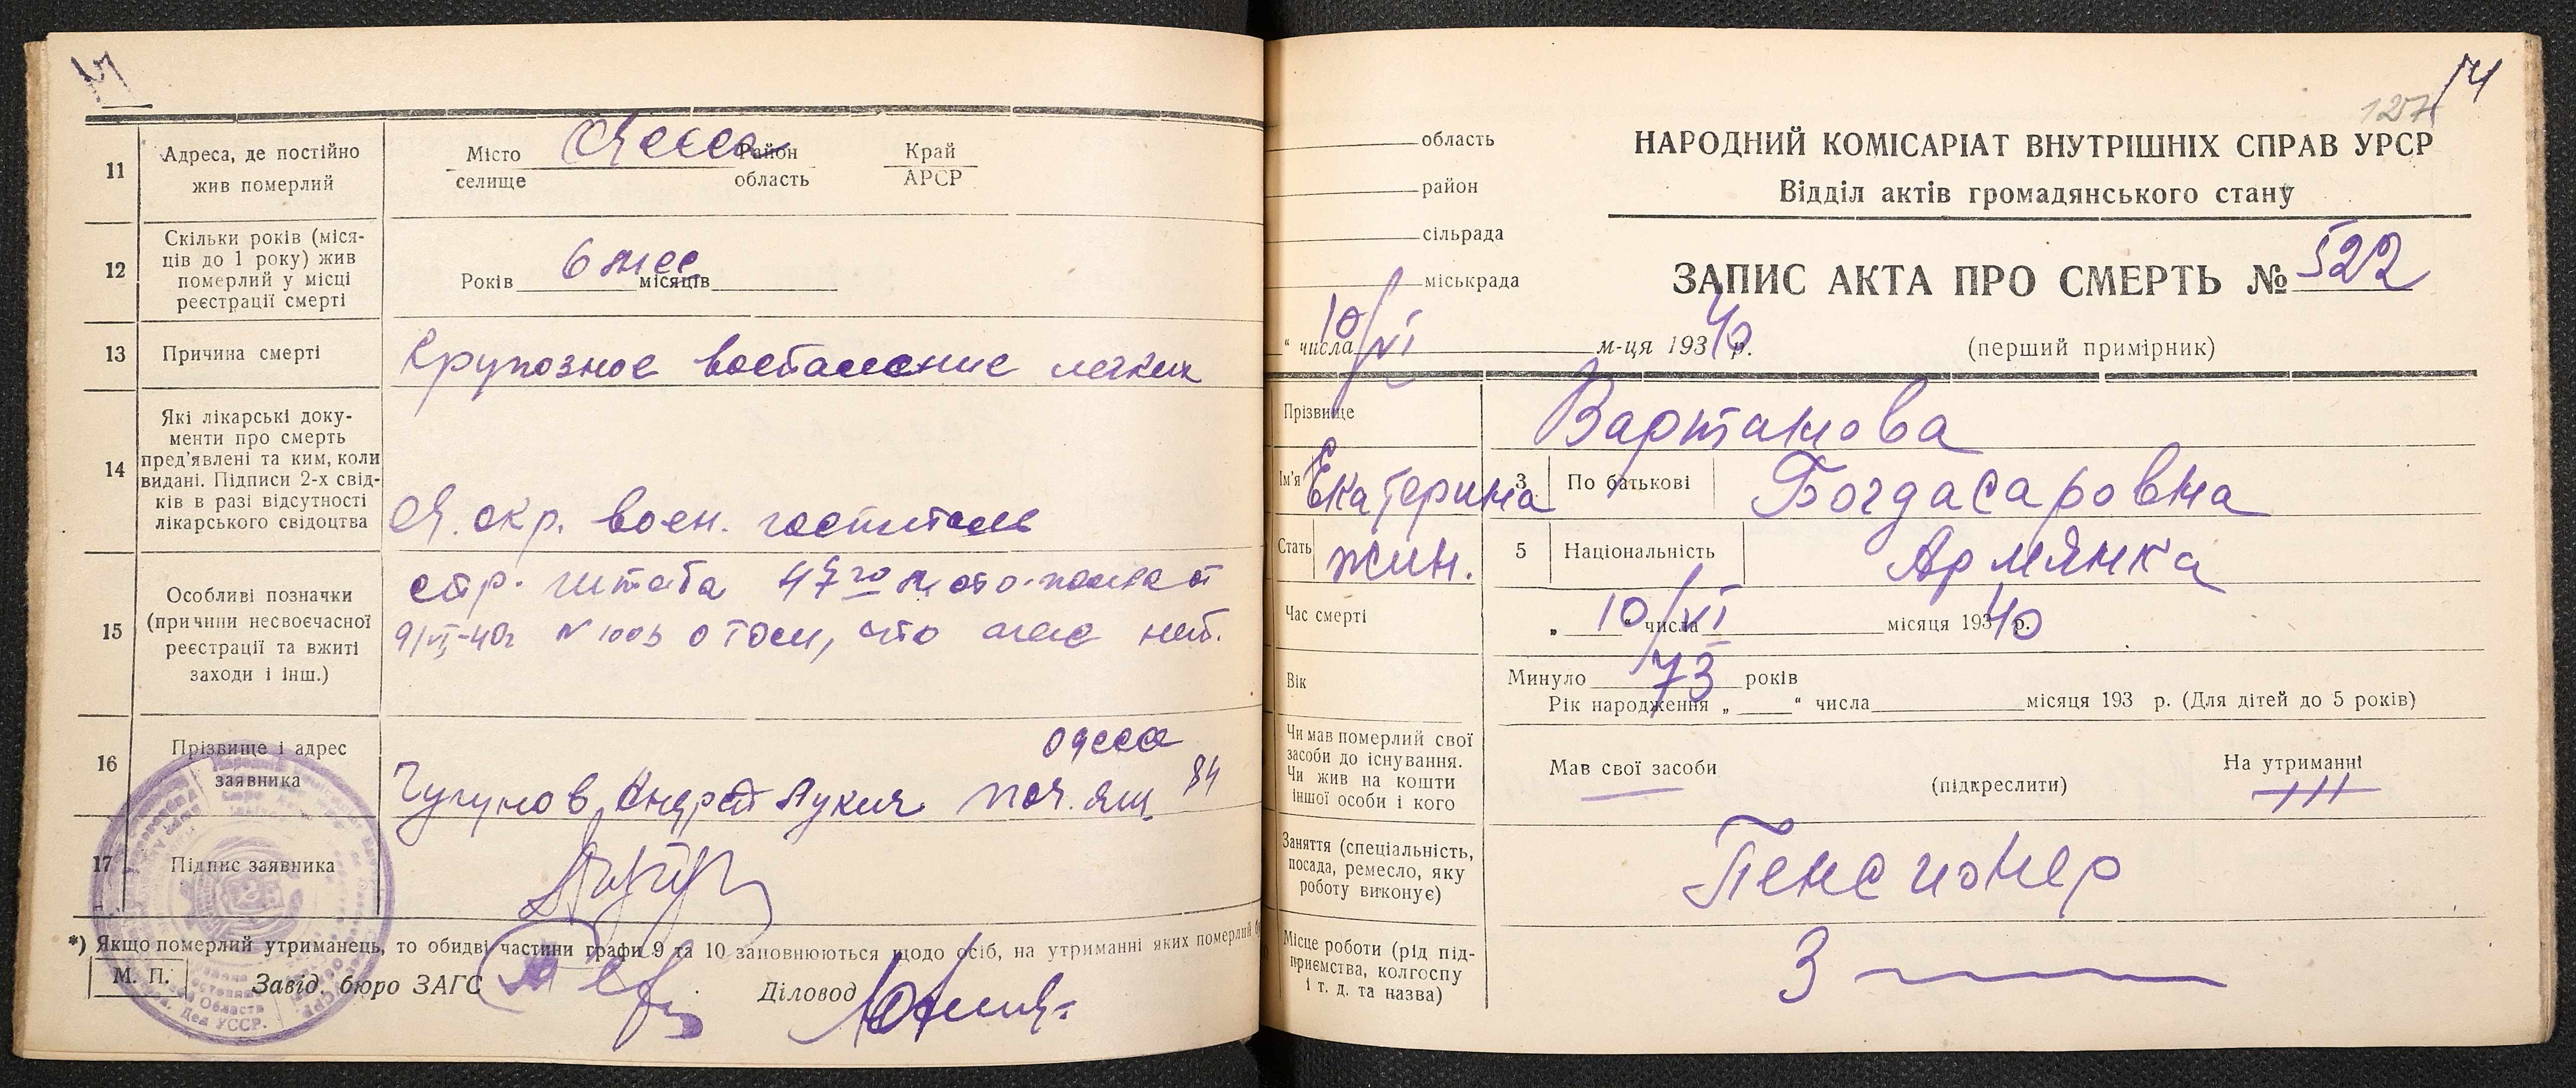 11
Адреса, де постійно
жив померлий
Місто Одесса Район Край
селище область АРСР
12
Скільки років (міся-
ців до 1 року) жив
померлий у місці
реєстрації смерті
Років 6 мес місяців
13
Причина смерті
Крупозное воспаление легких
14
Які лікарські доку-
менти про смерть
пред'явлені та ким, коли
видані. Підписи 2-х свід-
ків в разі відсутності
лікарського свідоцтва
Од. окр. воен. госпиталь
15
Особливі позначки
(причини несвоєчасної
реєстрації та вжиті
заходи і інш.)
стр. штаба 47го
9/VI-40г N 1003 о том, что
16
Прізвище і адрес
заявника
Одесса
Чугунов, Андрей Лукич поч. ящ. 84
17
Підпис заявника
*) Якщо померлий утриманець, то обидві частини графи 9 та 10 заповнюються щодо осіб, на утриманні яких померлий
М. П. Завід. бюро ЗАГС Діловод
14
127
область
район
сільрада
міськрада
НАРОДНИЙ КОМІСАРІАТ ВНУТРІШНІХ СПРАВ УРСР
Відділ актів громадянського стану
ЗАПИС АКТА ПРО СМЕРТЬ № 522
“ числа 10/VI м-ця 1940 р.
(перший примірник)
Прізвище
Вартанова
Ім'я Екатерина 3 По батькові Богдасаровна
Стать жин. 5 Національність Армянка
Час смерті „ 10/VI “ числа місяця 193 40 р.
Вік
Минуло 73 років
Рік народження „ “ числа місяця 193 р. (Для дітей до 5 років)
Чи мав померлий свої
засоби до існування.
Чи жив на кошти
іншої особи і кого
Мав свої засоби (підкреслити) На утриманні
Заняття (спеціальність,
посада, ремесло, яку
роботу виконує)
Пенсионер
Місце роботи (рід під-
приємства, колгоспу
і т. д. та назва)
З